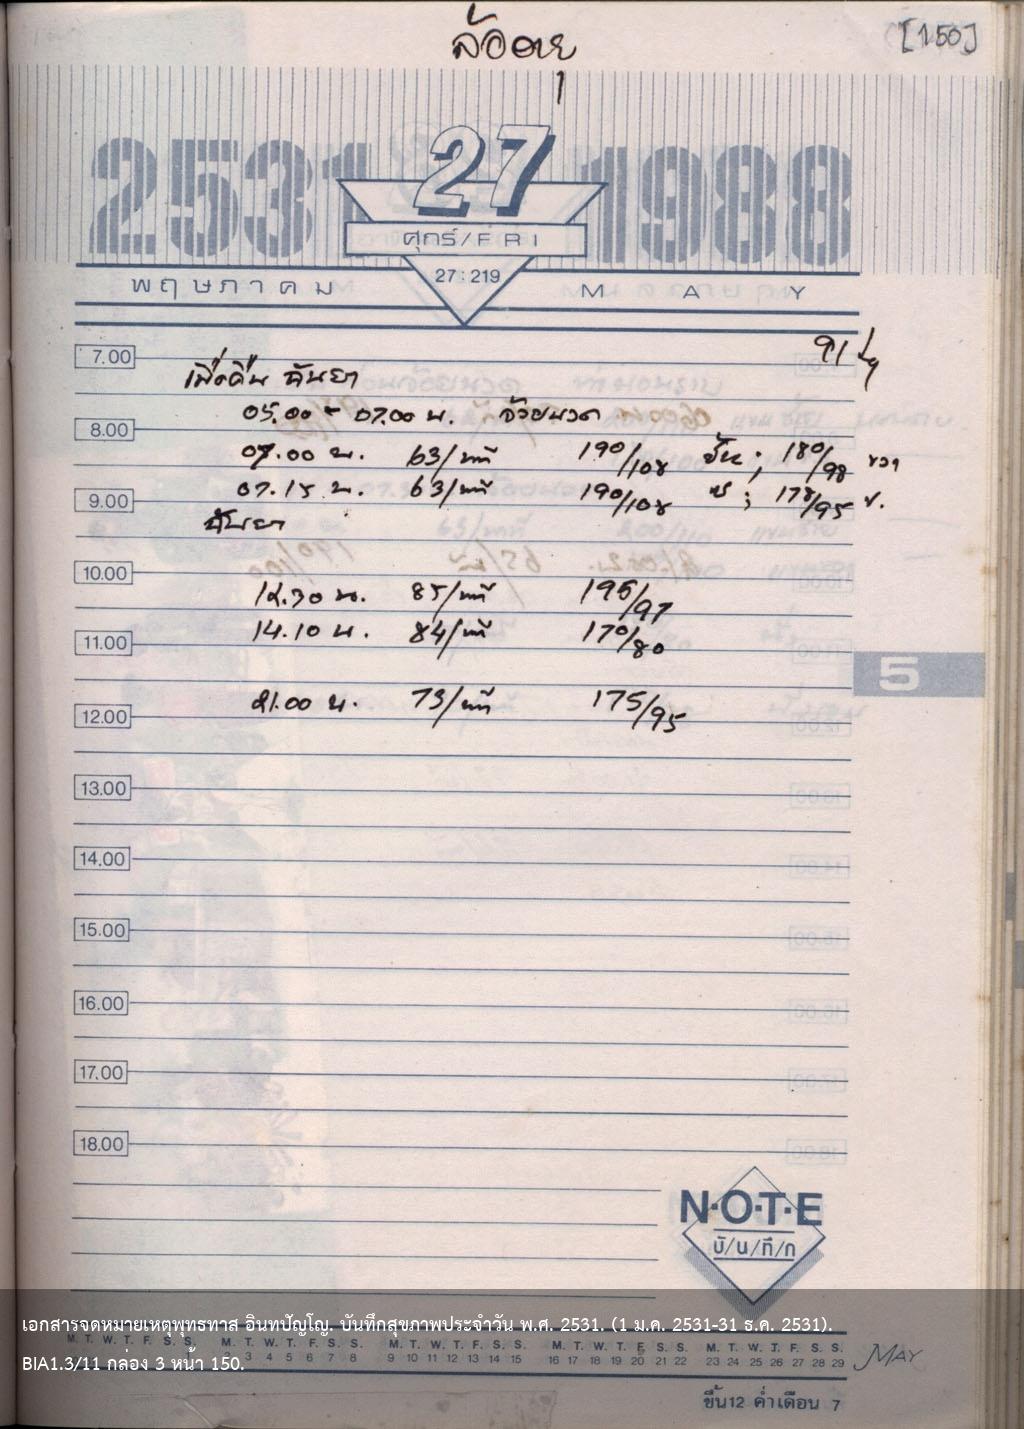 ล้ออายุ
[150]
2531 27 1988
ศุกร์/FRI
27:219
พฤษภาคม MAY
91
7.00
เมื่อคืน ฉันยา
05.00 - 07.00 น.
8.00
07.00 น. 63/นาที 190/108 ; 180/98 ขวา
9.00
07.15 น. 63/นาที 190/108 ซ ; 178/95 ข.
ฉันยา
10.00
12.30 น. 85/นาที 195/97
11.00
14.10 น. 84/นาที 170/80
5
21.00 น. 73/นาที 175/95
12.00
13.00
14.00
15.00
16.00
17.00
18.00
N·O·T·E
บั/น/ทึ/ก
เอกสารจดหมายเหตุพุทธทาส อินทปัญโญ. บันทึกสุขภาพประจำวัน พ.ศ. 2531. (1 ม.ค. 2531-31 ธ.ค. 2531).
M. T. W. T. F. S. S. M. T. W. T. F. S. S. M. T. W. T. F. S. S. M. T. W. T. F. S. S. M. T. W. T. F. S. S.
BIA1.3/11 กล่อง 3 หน้า 150.
3 4 5 6 7 8 9 10 11 12 13 14 15 16 17 18 19 20 21 22 23 24 25 26 27 28 29 MAY
ขึ้น12 ค่ำเดือน 7